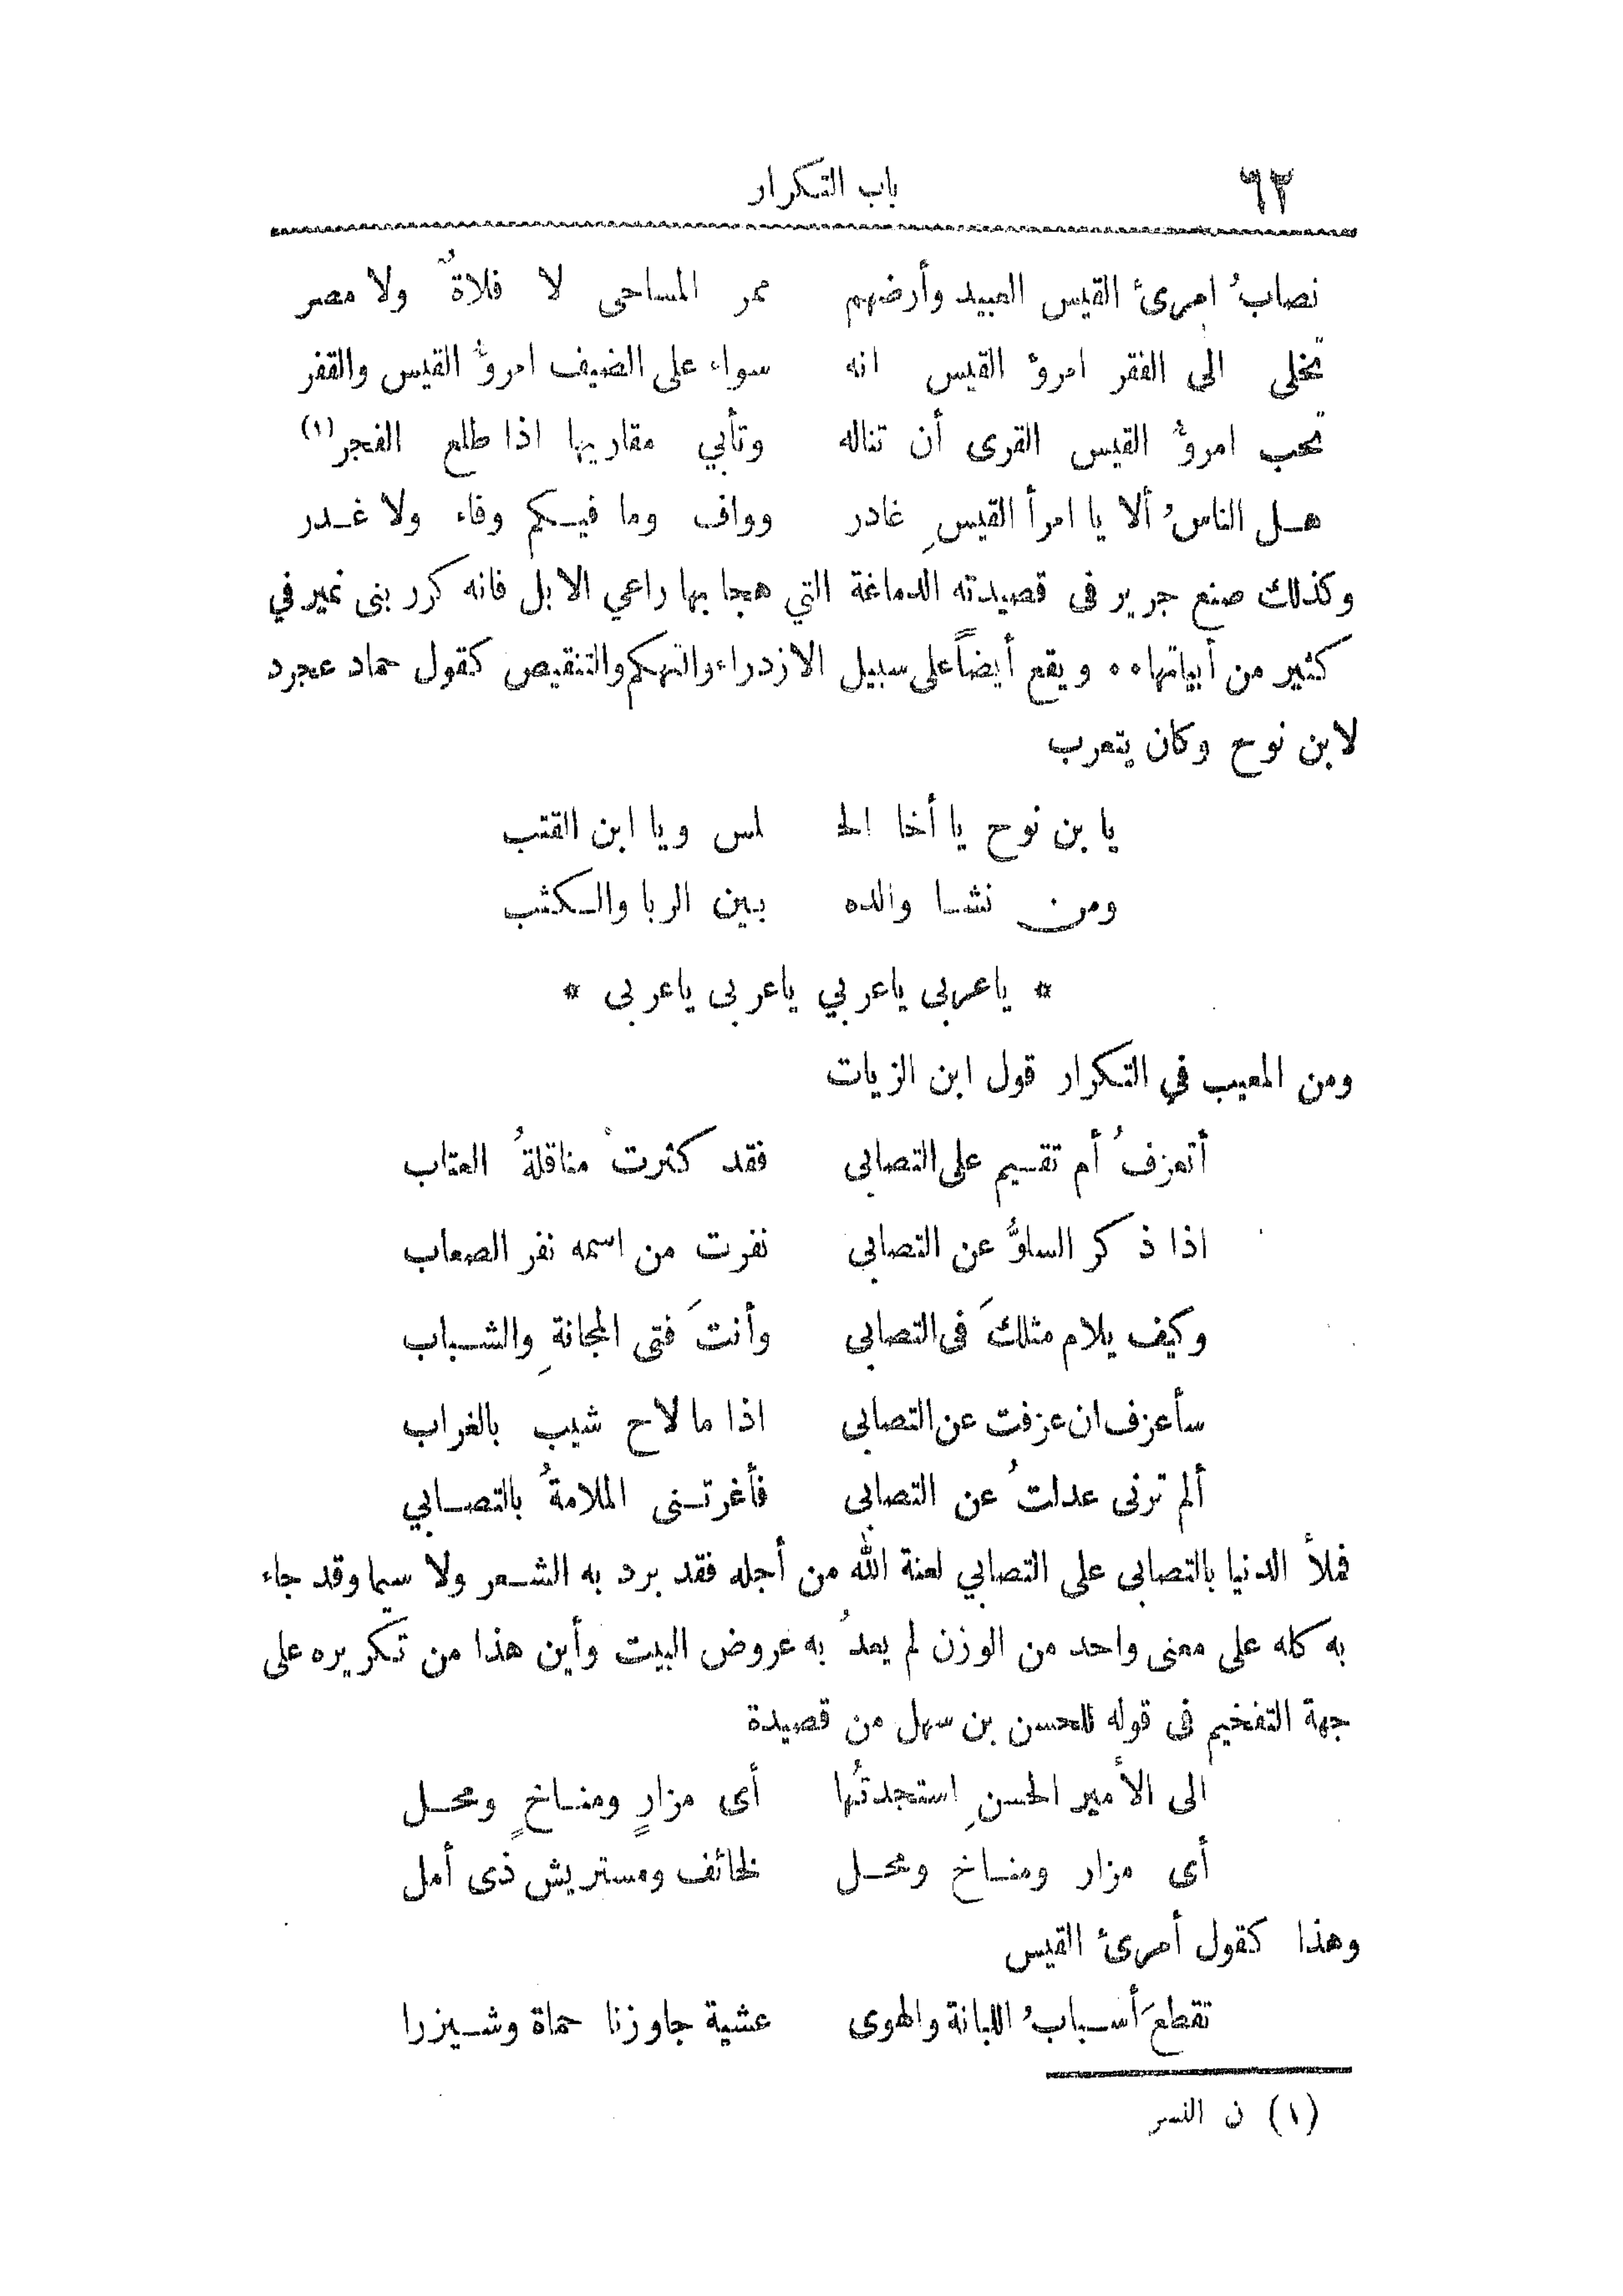 ٦٢ باب التكرار
نصابُ امرئ القيس العبيد وأرضهم ممر المساحى لا فلاةٌ ولا مصر
تخلى الى الفقر امرؤ القيس انه سواء على الضيف امرؤُ القيس والقفر
تحب امرؤُ القيس القرى أن تناله وتأبي مقاريها اذا طلع الفجر(١)
هل الناسُ ألا يا امرأ القيسِ غادر وواف وما فيكم وفاء ولا غدر
وكذلك صنع جرير فى قصيدته الدماغة التي هجا بها راعي الابل فانه كرر بنى نمير في
كثير من أبياتها ٠٠ ويقع أيضاً على سبيل الازدراء والتهكم والتنقيص كقول حماد عجرد
لابن نوح وكان يتعرب
يا بن نوح يا أخا الحـ لس ويا ابن القتب
ومن نشا والده بين الربا والكثب
* ياعربى ياعربي ياعربى ياعربى *
ومن المعيب في التكرار قول ابن الزيات
أتعزفُ أم تقيم على التصابى فقد كثرتْ مناقلةُ العتاب
اذا ذكر السلوُّ عن التصابي نفرت من اسمه نفر الصعاب
وكيف يلام مثلكَ فى التصابى وأنتَ فتى المجانةِ والشباب
سأعزف ان عزفت عن التصابى اذا ما لاح شيب بالغراب
ألم ترنى عدلتُ عن التصابى فأغرتنى الملامةُ بالتصابي
فملأ الدنيا بالتصابى على التصابي لعنة الله من أجله فقد برد به الشعر ولا سيما وقد جاء
به كله على معنى واحد من الوزن لم يعدُ به عروض البيت وأين هذا من تكريره على
جهة التفخيم فى قوله للحسن بن سهل من قصيدة
الى الأمير الحسنِ استجدتُها أى مزارٍ ومناخٍ ومحل
أى مزار ومناخ ومحل لخائف ومستريش ذى أمل
وهذا كقول أمرئ القيس
تقطعَ أسبابُ اللبانة والهوى عشية جاوزنا حماة وشيزرا
(١) ن النسر